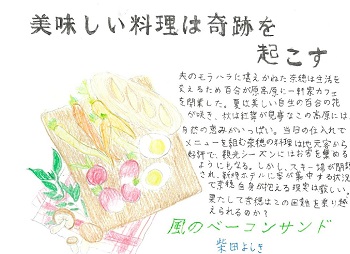 美味しい料理は奇跡を
起こす
夫のモラハラに堪えかねた奈穂は生活を
変えるため百合が原高原に一軒家カフェ
を開業した。夏は美しい自生の百合の花
が咲き、秋は紅葉が見事なこの高原には
自然の恵みがいっぱい。当日の仕入れで
メニューを組む奈穂の料理は地元客から
好評で、観光シーズンにはお客を集める
ようにもなる。しかし、スキー場が閉鎖
され、新規ホテルに客が集中する状況
で奈穂自身が抱える現実は厳しい。
果たして奈穂はこの困難を乗り越
えられるのか?
風のベーコンサンド
柴田よしき